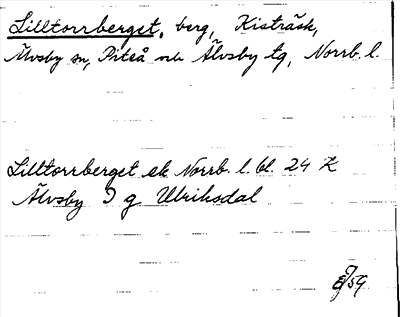 Lilltorrberget, berg, Kisträsk,
Älvsby sn, Piteå och Älvsby tg, Norrb. l.
Lilltorrberget ek. Norrb. l. bl. 24 K
Älvsby J g Ulriksdal
59